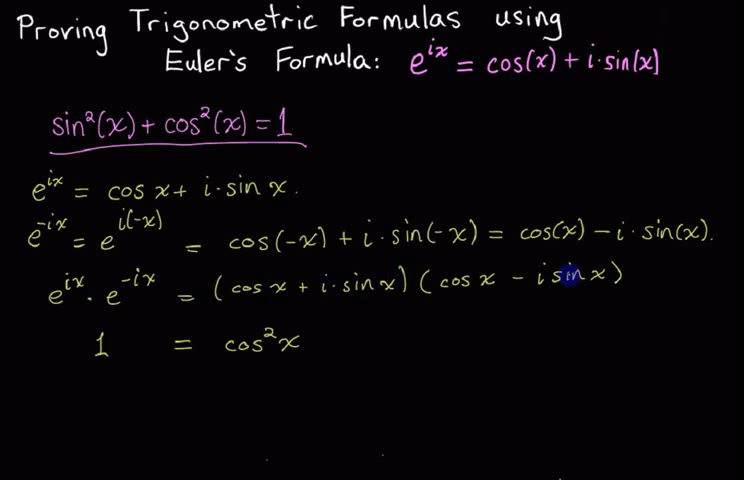 Proving Trigonometric Formulas using
Euler's Formula: e^{ix} = cos(x) + i·sin(x)
sin²(x) + cos²(x) = 1
e^{ix} = cos x + i·sin x.
e^{-ix} = e^{i(-x)} = cos(-x) + i·sin(-x) = cos(x) - i·sin(x).
e^{ix}·e^{-ix} = (cos x + i·sin x)(cos x - i sin x)
1 = cos²x